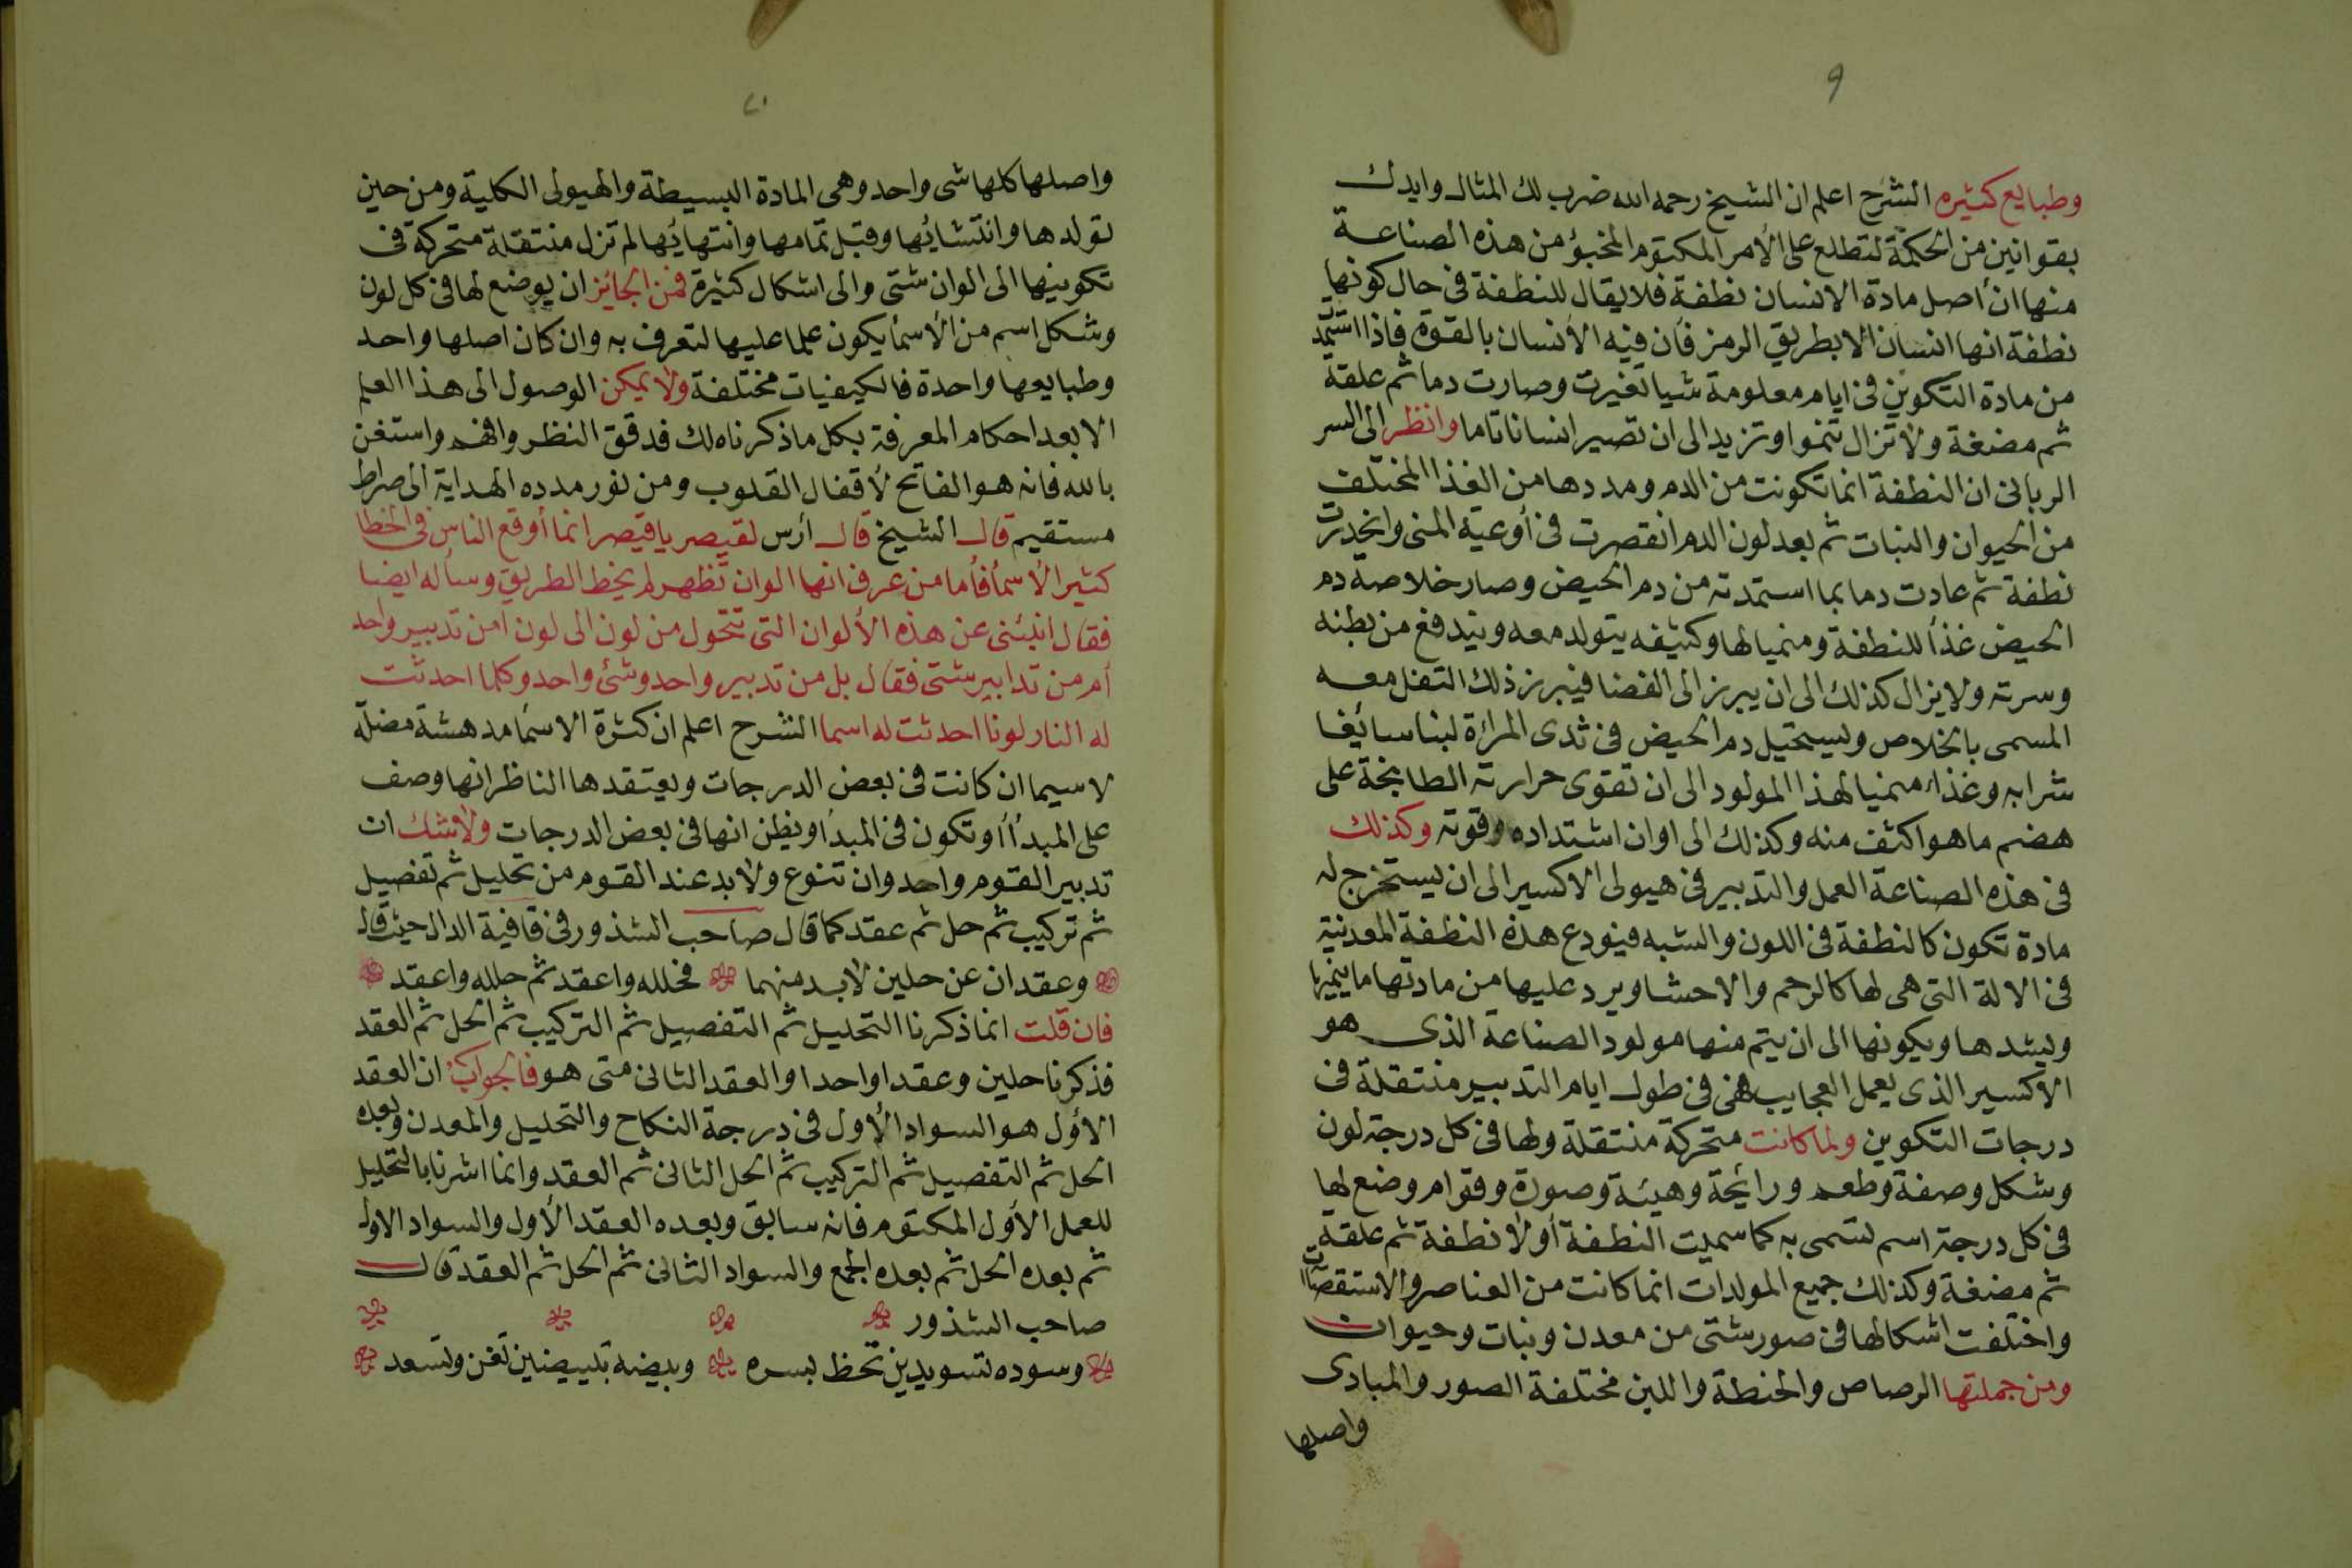 ٩
وطبايع كثيره الشرح اعلم ان الشيخ رحمه الله ضرب لك المثال وايدك
بقوانين من الحكمة لتطلع على الأمر المكتوم المخبؤ من هذه الصناعة
منها ان أصل مادة الانسان نطفة فلا يقال للنطفة فى حال كونها
نطفة انها انسان الا بطريق الرمز فأن فيه الأنسان بالقوة فاذا استمد
من مادة التكوين فى ايام معلومة شيا تغيرت وصارت دما ثم علقة
ثم مضغة ولا تزال تنموا وتزيد الى ان تصير انسانا تاما وانظر الى السر
الربانى ان النطفة انما تكونت من الدم ومددها من الغذا المختلف
من الحيوان والنبات ثم بعد لون الدم انقصرت فى أوعية المنى وانحدرت
نطفة ثم عادت دما بما استمدته من دم الحيض وصار خلاصة دم
الحيض غذأ للنطفة ومنميا لها وكثيفه يتولد معه ويندفع من بطنه
وسرته ولا يزال كذلك الى ان يبرز الى الفضا فيبرز ذلك التفل معه
المسمى بالخلاص ويستحيل دم الحيض فى ثدى المرأة لبنا سائغا
شرابه وغذاء منميا لهذا المولود الى ان تقوى حرارته الطابخة على
هضم ما هو اكثف منه وكذلك الى اوان اشتداده وقوته وكذلك
فى هذه الصناعة العمل والتدبير فى هيولى الاكسير الى ان يستخرج له
مادة تكون كالنطفة فى اللون والشبه فيودع هذة النطفة المعدنية
فى الالة التى هى لها كالرحم والاحشا ويرد عليها من مادتها ما ينميها
ويشدها ويكونها الى ان يتم منها مولود الصناعة الذى هو
الاكسير الذى يعمل العجايب فهى فى طول ايام التدبير منتقلة فى
درجات التكوين ولما كانت متحركة منتقلة ولها فى كل درجة لون
وشكل وصفة وطعم ورائحة وهيئة وصورة وقوام وضع لها
فى كل درجة اسم تسمى به كما سميت النطفة أولا نطفة ثم علقة
ثم مضغة وكذلك جميع المولدات انما كانت من العناصر والاستقصات
واختلفت اشكالها فى صور شتى من معدن ونبات وحيوان
ومن جملتها الرصاص والحنطة واللبن مختلفة الصور والمبادى
واصلها
واصلها كلها شى واحد وهى المادة البسيطة والهيولى الكلية ومن حين
تولدها وانتشائها وقبل تمامها وانتهائها لم تزل منتقلة متحركة فى
تكوينها الى الوان شتى والى اشكال كثيرة فمن الجائز ان يوضع لها فى كل لون
وشكل اسم من الأسمأ يكون علما عليها لتعرف به وان كان اصلها واحد
وطبايعها واحدة فالكيفيات مختلفة ولا يمكن الوصول الى هذا العلم
الا بعد احكام المعرفة بكل ما ذكرناه لك فدقق النظر وافهم واستغن
بالله فانه هو الفاتح لأقفال القلوب ومن نور مدده الهداية الى صراط
مستقيم قال الشيخ قال ارس لقيصر يا قيصر انما أوقع الناس فى الخطا
كثير الأسمأ فأما من عرف انها الوان تظهر لم يخط الطريق وسأله ايضا
فقال انبئنى عن هذه الألوان التى تتحول من لون الى لون امن تدبير واحد
أم من تدابير شتى فقال بل من تدبير واحد وشئ واحد وكلما احدثت
له النار لونا احدثت له اسما الشرح اعلم ان كثرة الاسمأ مدهشة مضلة
لا سيما ان كانت فى بعض الدرجات ويعتقدها الناظر انها وصف
على المبدأ أو تكون فى المبدأ ويظن انها فى بعض الدرجات ولا شك ان
تدبير القوم واحد وان تنوع ولا بد عند القوم من تحليل ثم تفصيل
ثم تركيب ثم حل ثم عقد كما قال صاحب الشذور فى قافية الدال حيث قال
وعقدان عن حلين لا بد منهما فحلله واعقد ثم حلله واعقد
فان قلت انما ذكرنا التحليل ثم التفصيل ثم التركيب ثم الحل ثم العقد
فذكرنا حلين وعقدا واحدا والعقد الثانى متى هو فالجواب ان العقد
الأول هو السواد الأول فى درجة النكاح والتحليل والمعدن وبعده
الحل ثم التفصيل ثم التركيب ثم الحل الثانى ثم العقد وانما اشرنا بالتحليل
للعمل الأول المكتوم فانه سابق وبعده العقد الأول والسواد الاول
ثم بعده الحل ثم بعده الجمع والسواد الثانى ثم الحل ثم العقد قال
صاحب الشذور
وسوده تسويدين تحظ بسره وبيضه تبييضين تغن وتسعد